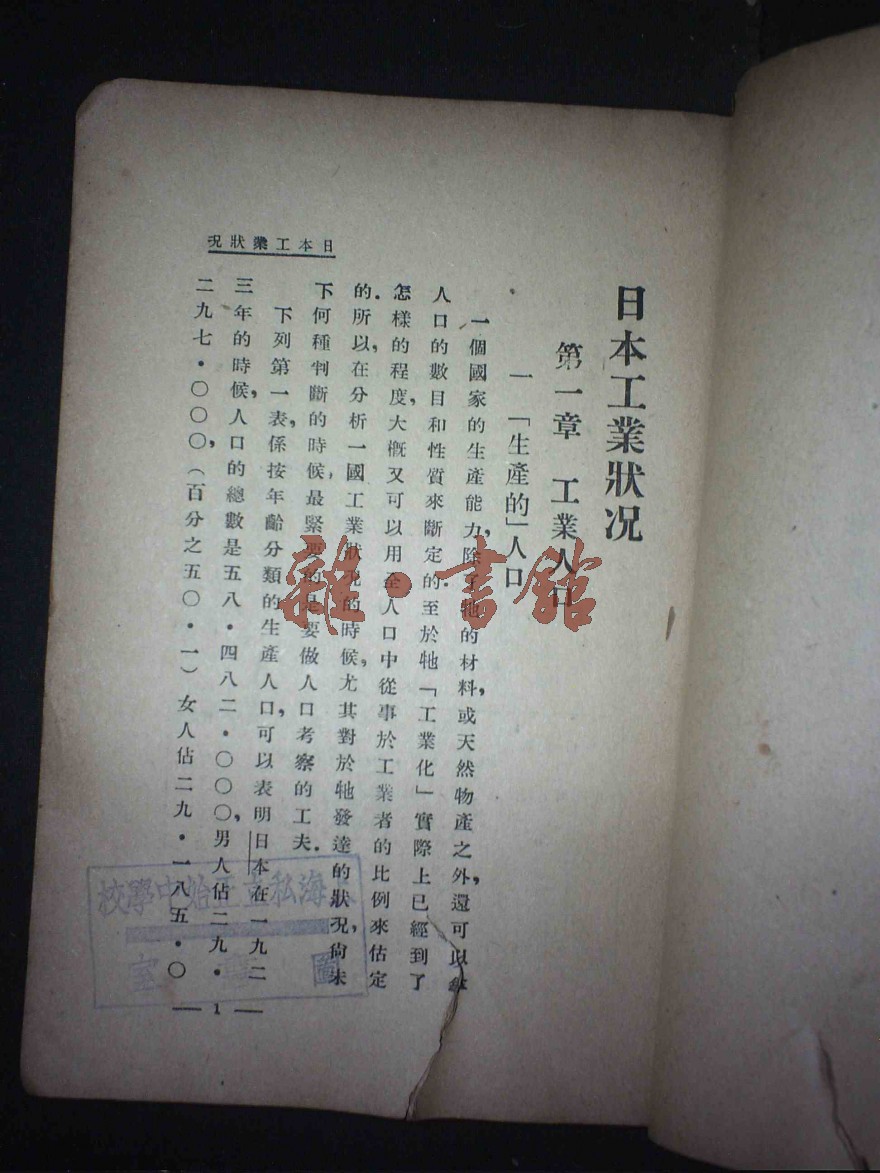 日本工業狀况
第一章　工業人口
一　「生產的」人口
一個國家的生產能力，除了牠的材料，或天然物產之外，還可以拿
人口的數目和性質來斷定的．至於牠「工業化」實際上已經到了
怎樣的程度，大概又可以用全人口中從事於工業者的比例來估定
的．所以，在分析一國工業狀况的時候，尤其對於牠發達的狀况，尙未
下何種判斷的時候，最緊要的是要做人口考察的工夫．
下列第一表，係按年齡分類的生產人口，可以表明日本在一九二
三年的時候，人口的總數是五八・四八二・〇〇〇，男人佔二九・
二九七・〇〇〇，（百分之五〇・一）女人佔二九・一八五・〇
日本工業狀况
— 1 —
海私立正始中學校
圖　室
雜・書館